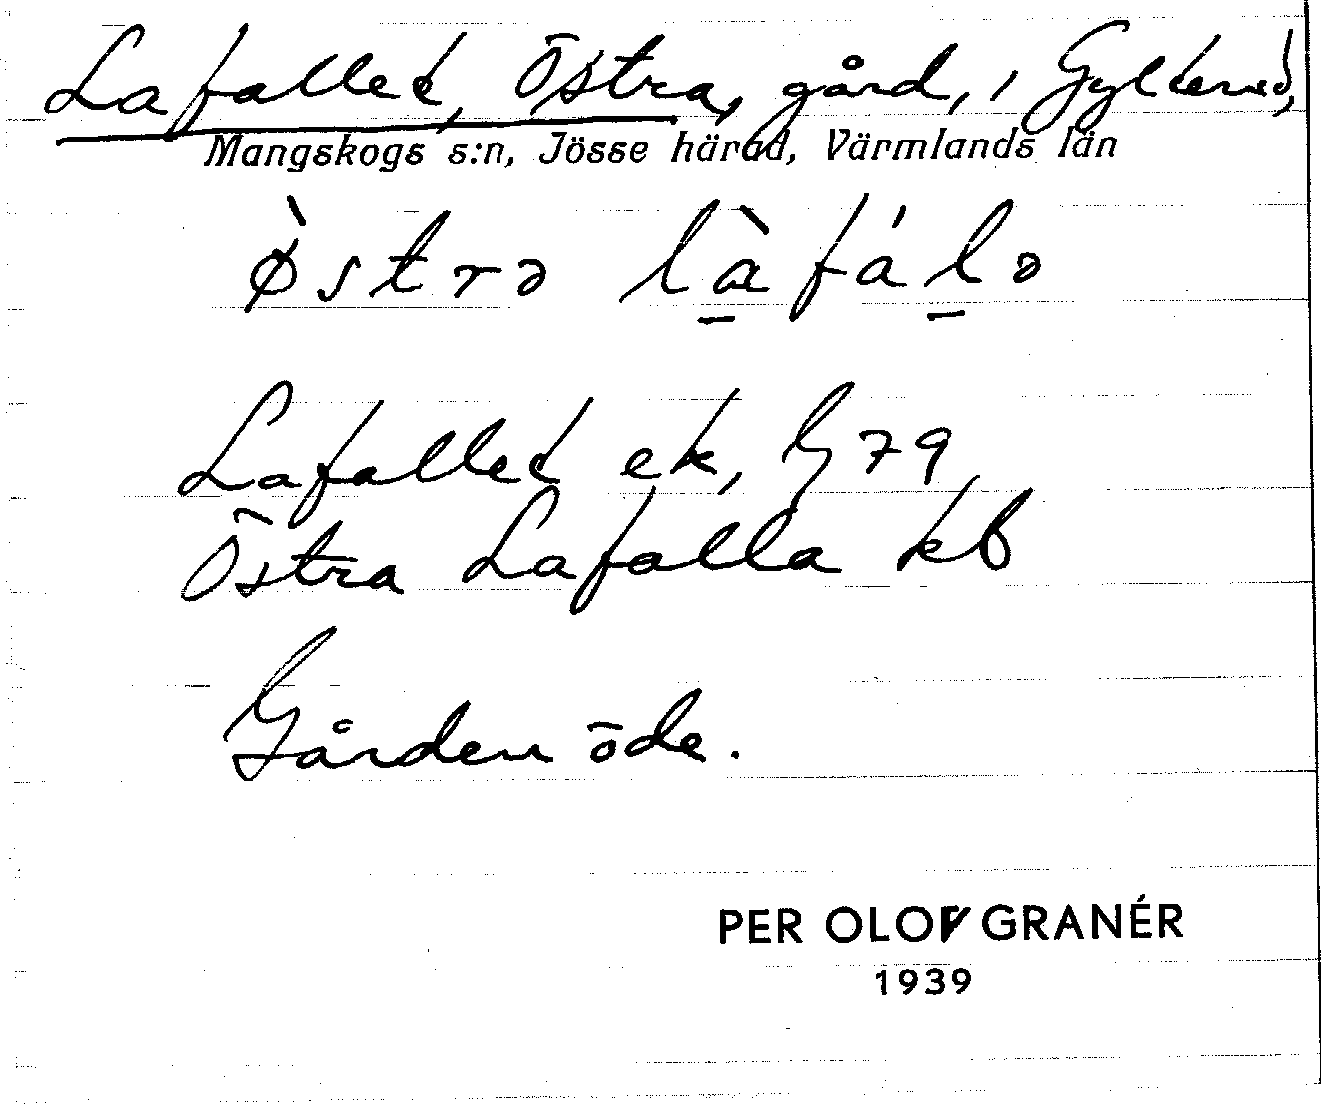 Lafallet, Östra, gård, i Gyltened,
Mangskogs s:n, Jösse härad, Värmlands län
ø̀strə là̱fáḻə
Lafallet ek, G 79
Östra Lafalla kb
Gården öde.
PER OLOV GRANÉR
1939